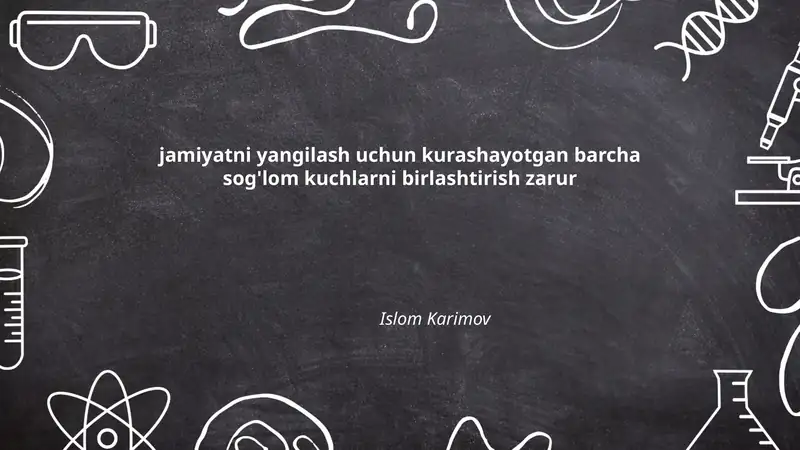 jamiyatni yangilash uchun kurashayotgan barcha
sog'lom kuchlarni birlashtirish zarur
Islom Karimov